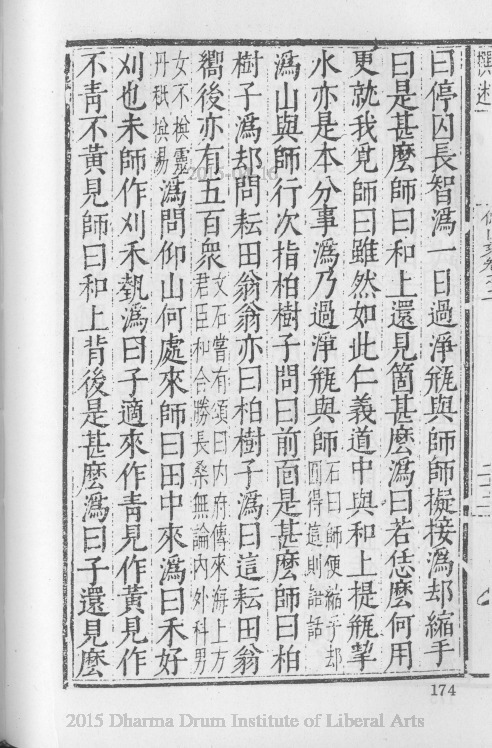 曰停囚長智溈一日過淨瓶與師師擬接溈却縮手
曰是甚麼師曰和上還見箇甚麼溈曰若恁麼何用
更就我覓師曰雖然如此仁義道中與和上提瓶挈
水亦是本分事溈乃過淨瓶與師石曰師便縮手却圓得這則話
溈山與師行次指柏樹子問曰前面是甚麼師曰柏
樹子溈却問耘田翁翁亦曰柏樹子溈曰這耘田翁
嚮後亦有五百衆文石嘗有頌曰内府傳來海上方君臣和合勝長桑無論内外科男
女不換靈丹秖換湯溈問仰山何處來師曰田中來溈曰禾好
刈也未師作刈禾勢溈曰子適來作青見作黃見作
不青不黃見師曰和上背後是甚麼溈曰子還見麼
174
2015 Dharma Drum Institute of Liberal Arts